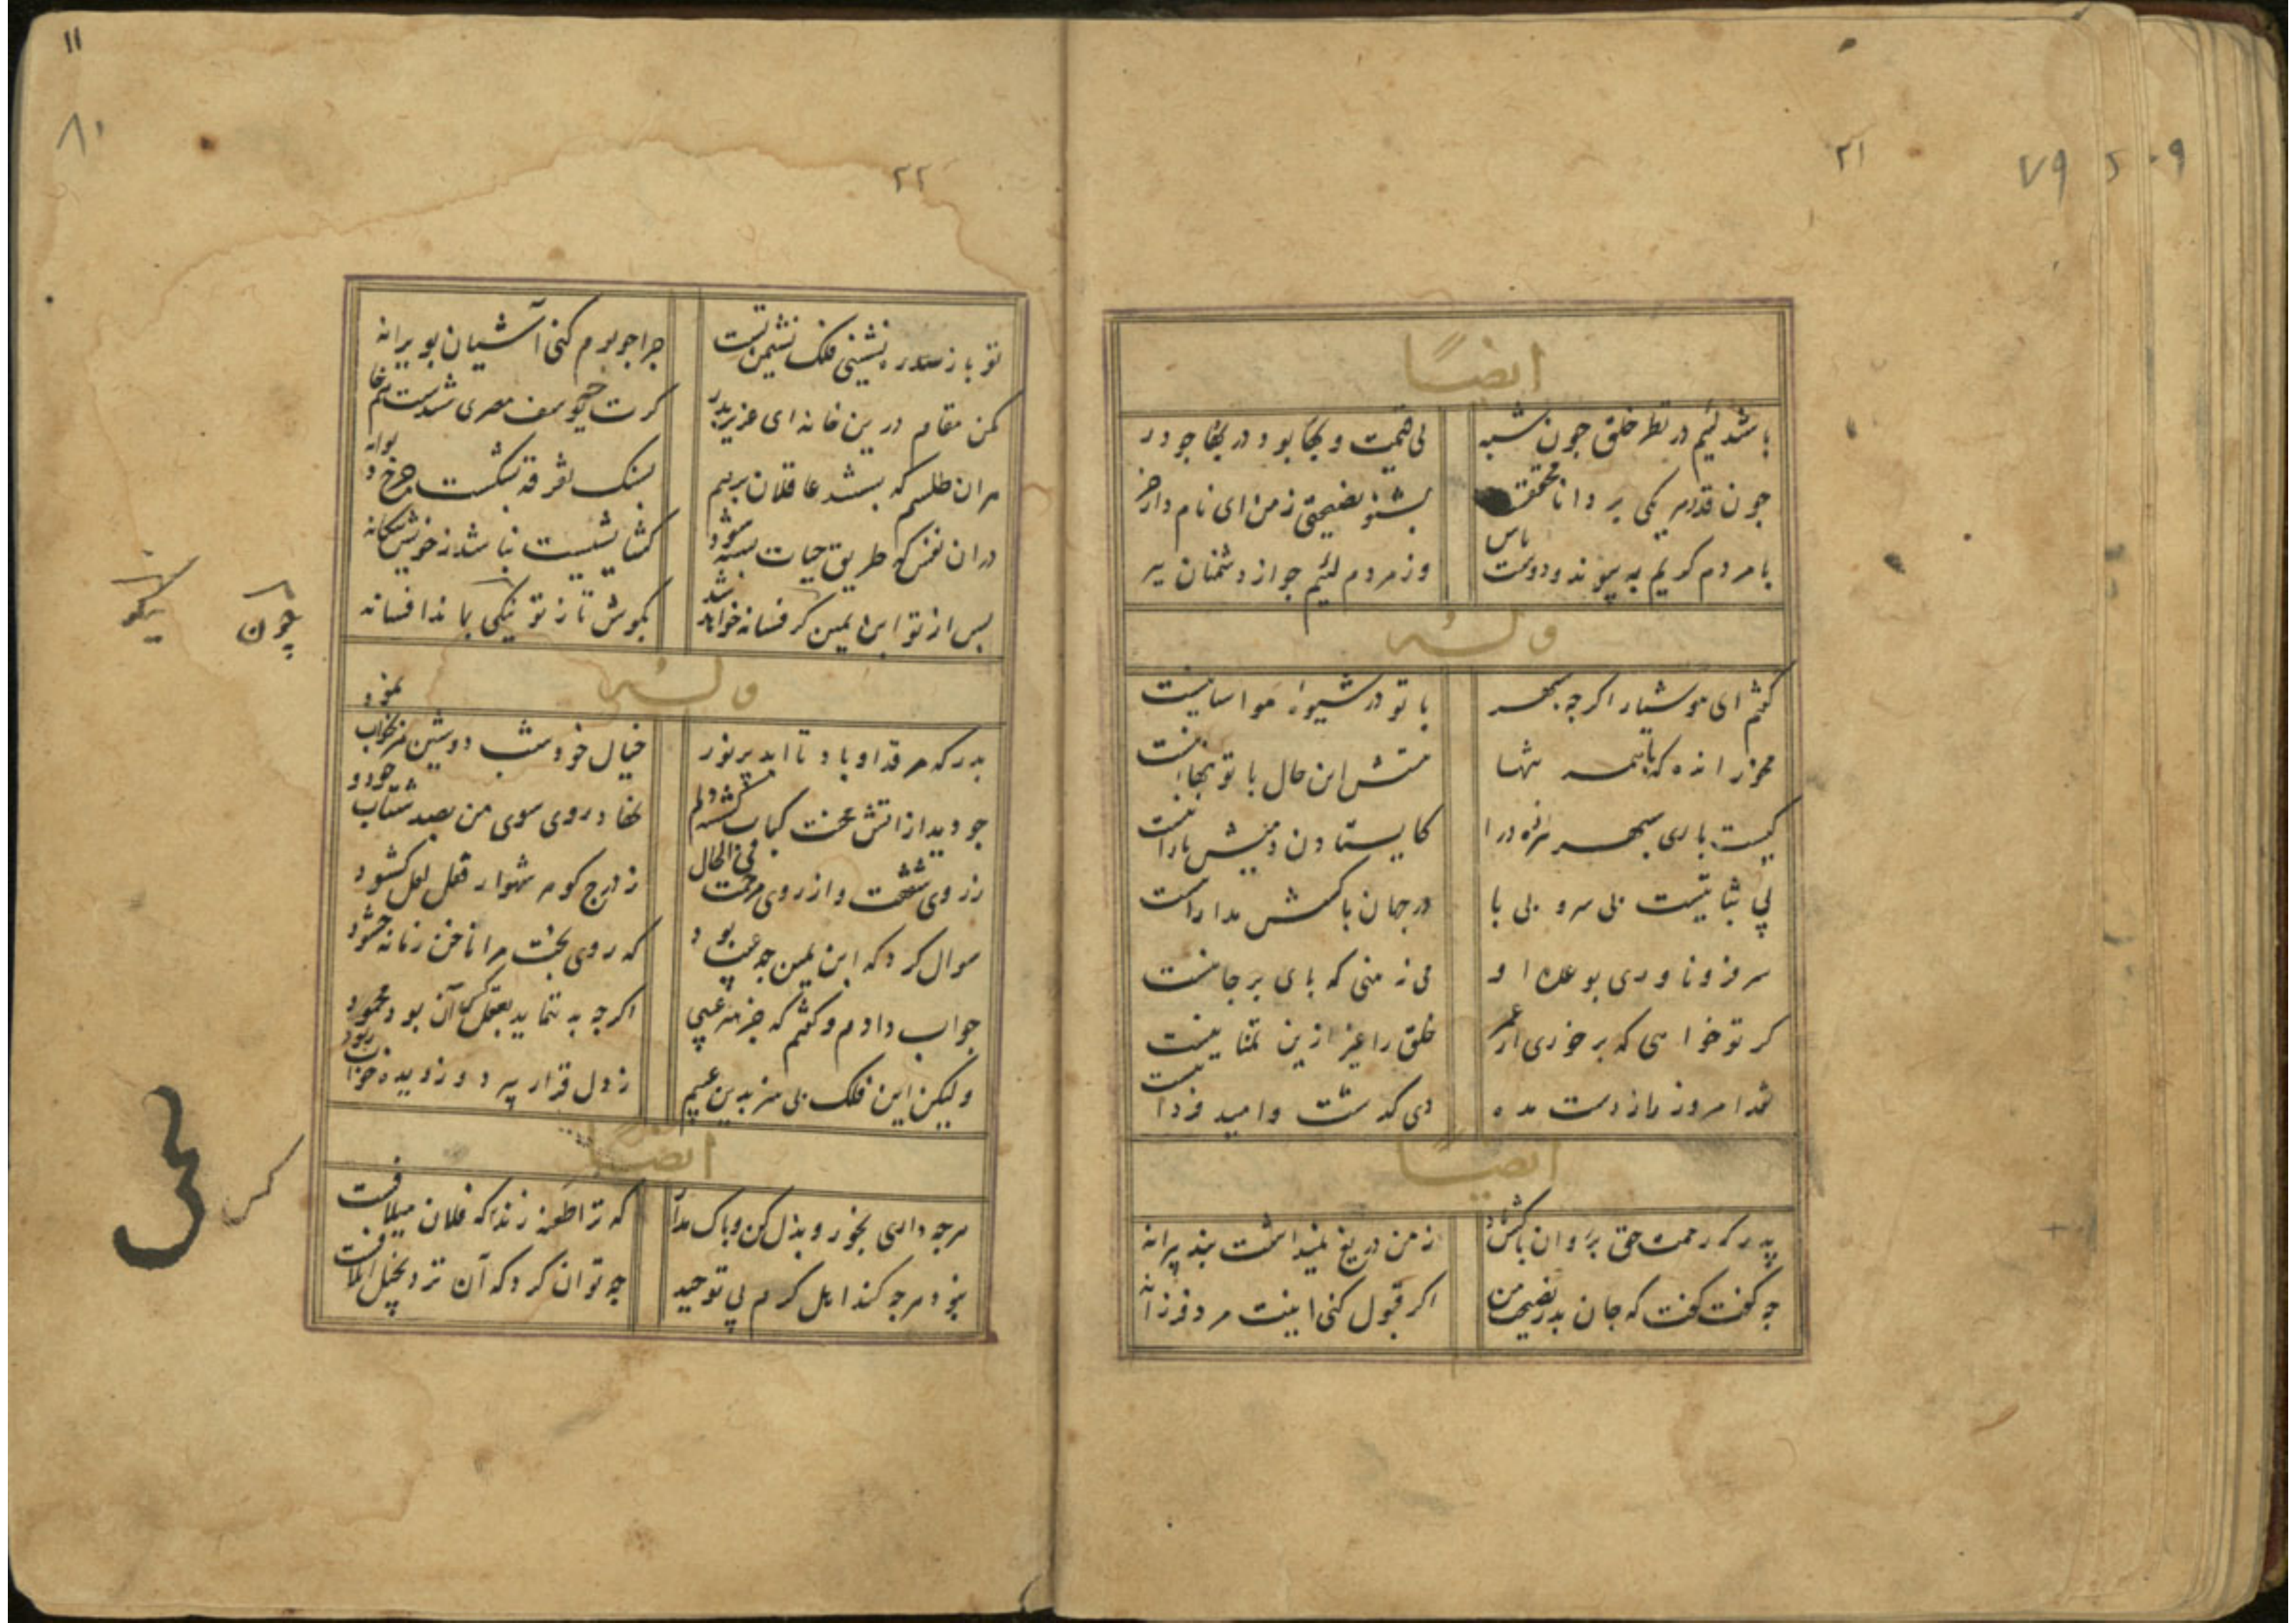 ۲۱
۷۹
ایضاً
باشد لئیم در نظر خلق چون شبه
بی قیمت و بکا بود در بکا جو در
چون قدر هر یکی بر دانا محقق
بشنو نصیحتی ز من ای نام دار حر
با مردم کریم به پیوند و دوست باش
وز مردم لئیم جو از دشمنان ببر
وله
گفتم ای هوشیار اگر چه سپهر
با تو در شیوهٔ مواسا نیست
منش این حال با تو تنها نیست
کیست باری سپهر
کایستادن دمیش یارا نیست
بی ثباتیست بی سر و بی پا
در جهان با کسش مدارا نیست
سر فرو ناوری بوعدهٔ او
می زمنی که پای بر جا نیست
کر تو خواهی که بر خوری از عمر
خلق را غیر ازین تمنا نیست
نقد امروز را ز دست مده
دی گذشت و امید فردا نیست
ایضاً
پدر که رحمت حق بر روان پاکش باد
ز من دریغ نمیداشت پند پیرانه
چه گفت گفت که جان پدر نصیحت من
اگر قبول کنی اینت مرد فرزانه
۱۱
۸۰
۲۲
تو باز سدره نشینی فلک نشیمن تست
چرا چو بوم کنی آشیان بویرانه
مکن مقام درین خانه ای عزیز پدر
گرت چو یوسف مصری شدست غم خانه
هر ان طلسم که بستند عاقلان بر هم
بسنگ تفرقه بشکست چرخ دیوانه
در ان نفس که طریق حیات بسته شود
گشایشیست نباشد ز خویش و بیکانه
پس از تو ابن یمین گر فسانه خواهد شد
بکوش تا ز تو نیکی بماند افسانه
چون
نیکو
وله
پدر که مرقد او باد تا ابد پر نور
خیال خود شب دوشین مرا بخواب نمود
چو دید از اتش محنت کباب گشته دلم
نهاد روی سوی من بصد شتاب چو دود
ز روی شفقت و از روی مرحمت فی الحال
ز درج گوهر شهوار قفل لعل گشود
سوال کرد که ابن یمین چه عیب بود
که روی بخت مرا ناخن زمانه خشود
جواب دادم و گفتم که جز هنر عیبی
اگر چه به نتماید بعقل آن بود محمود
ولیکن این فلک بی هنر بدین عیبم
ز دل قرار ببرد و ز دیده خواب ربود
ایضاً
هر چه داری بخور و بذل کن و باک مدار
که ترا طعنه زنند که فلان میلافست
نبود هر چه کند اهل کرم بی توحید
چه توان کرد که آن نزد بخیل اتلافست
کس